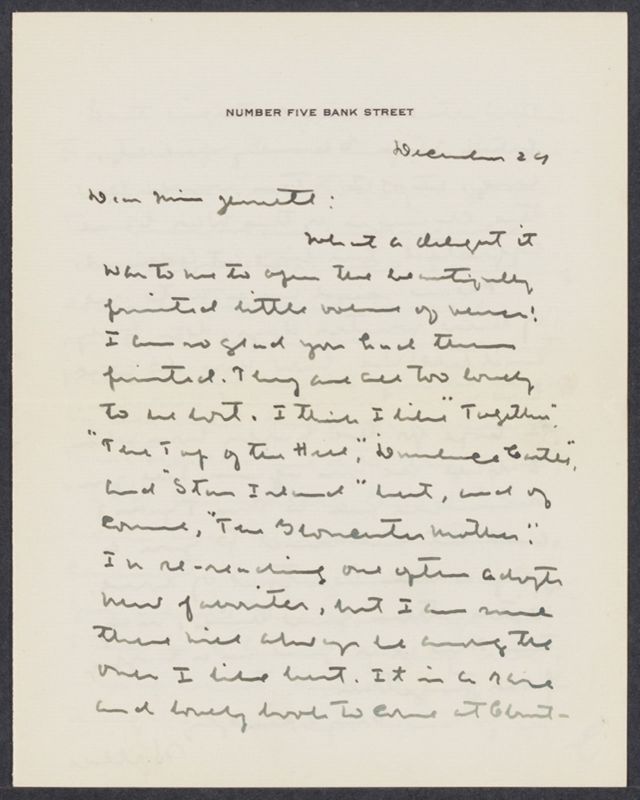 NUMBER FIVE BANK STREET
December 29
Dear Miss Jewett:
What a delight it
was to me to open the beautifully
printed little volume of verses!
I am so glad you had them
printed. They are all too lovely
to be lost. I think I like "Together",
"The Top of the Hill", "Dunluce Castle",
and "Star Island" best, and of
course, "The Gloucester Mother".
In re-reading one often adopts
new favorites, but I am sure
these will always be among the
ones I like best. It is a rare
and lovely book to come at Christ-